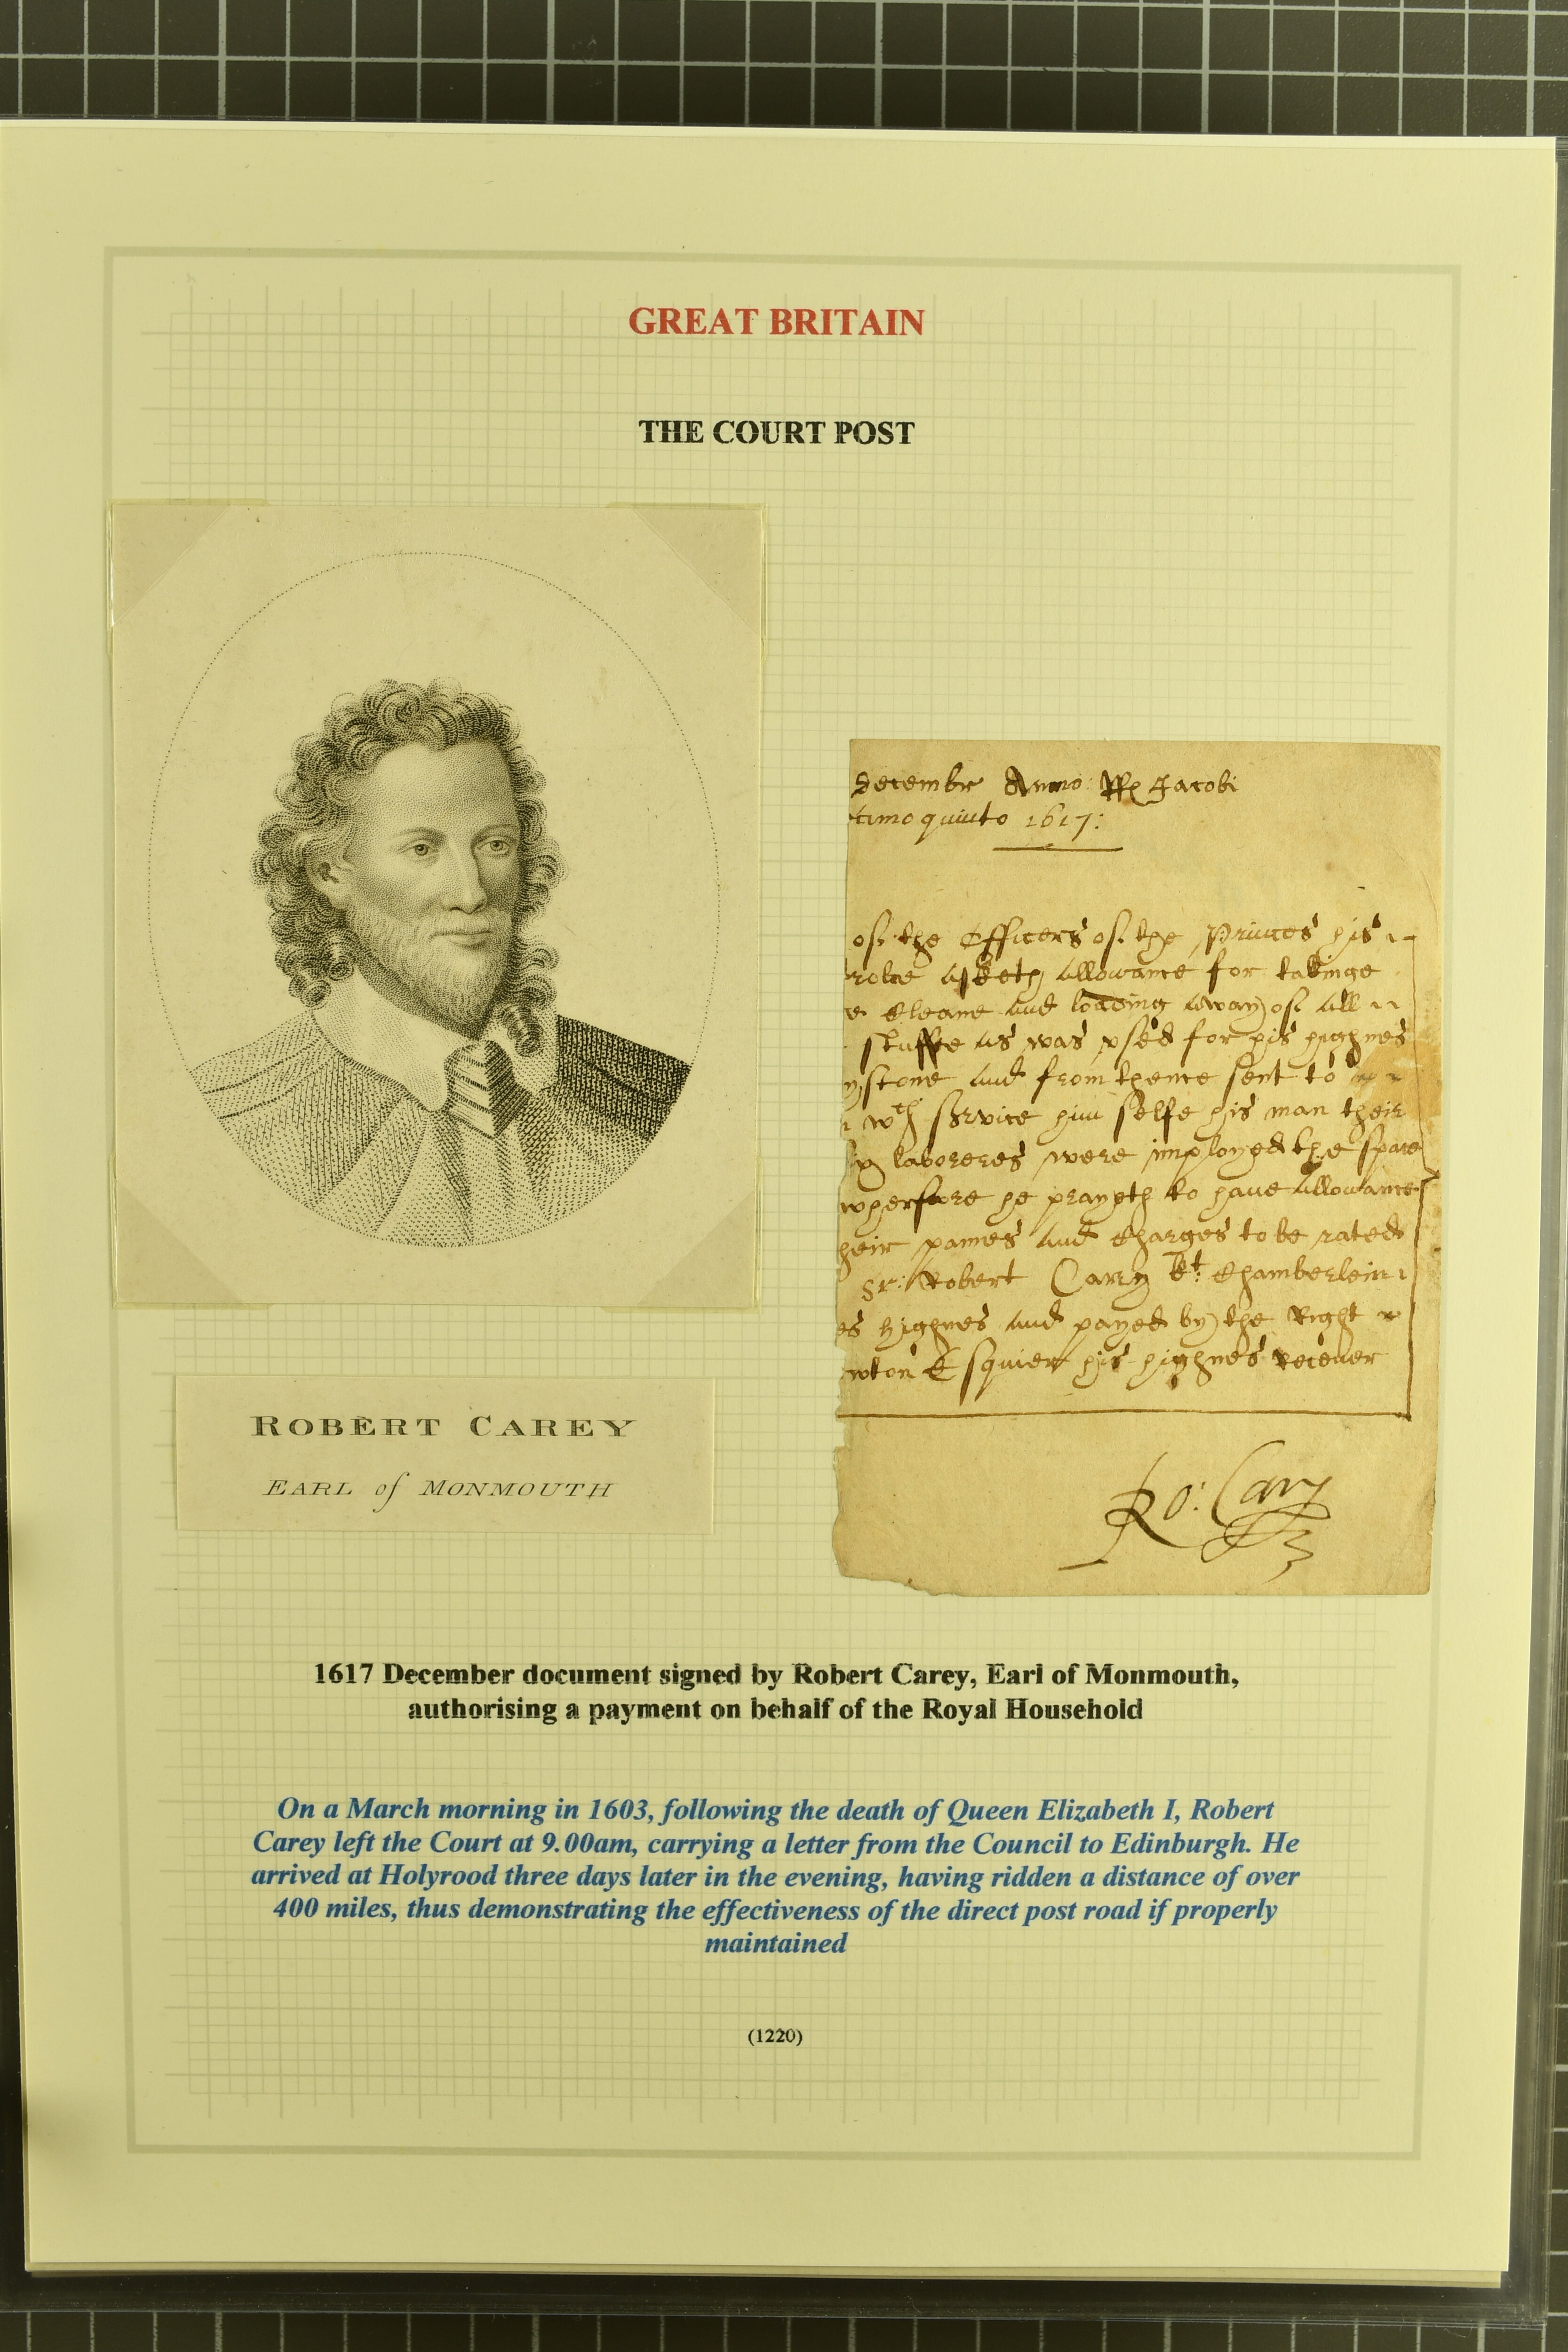 GREAT BRITAIN
THE COURT POST
decembr Anno RR Jacobi
timo quinto 1617:
of the Officers of the Princes his
robe asketh allowance for takinge
cleane and loading away of all
stuffe as was vsed for his highnes
stone and from thence sent to
wth service him selfe his man their
laboreres were imployed the space
wherfore he prayeth to have allowance
heir paines and charges to be rated
Sr: Robert Carey kt: Chamberlein
es highnes and payed by the Right
wton Esquier his highnes receuer
Ro: Cary
ROBERT CAREY
EARL of MONMOUTH
1617 December document signed by Robert Carey, Earl of Monmouth,
authorising a payment on behalf of the Royal Household
On a March morning in 1603, following the death of Queen Elizabeth I, Robert
Carey left the Court at 9.00am, carrying a letter from the Council to Edinburgh. He
arrived at Holyrood three days later in the evening, having ridden a distance of over
400 miles, thus demonstrating the effectiveness of the direct post road if properly
maintained
(1220)